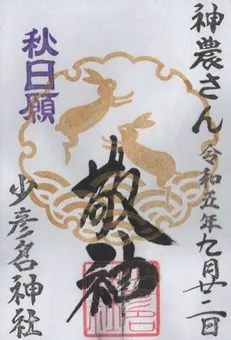 神農さん
令和五年九月廿二日
敬神
秋日願
少彦名神社